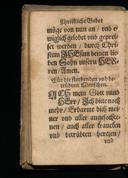 Christliche Gebet
möge von nun an / und e-
wiglich gelobet und geprei-
set werden / durch Chri-
stum JEsum deinen lie-
ben Sohn unsern HEr-
ren / Amen.
Für die sterbenden und be-
trübten Menschen.
ACh mein Gott und
HErr / Ich bitte noch
mehr / Erbarme dich mei-
ner und aller angefochte-
nen / auch aller krancken
und betrübten hertzen /
und